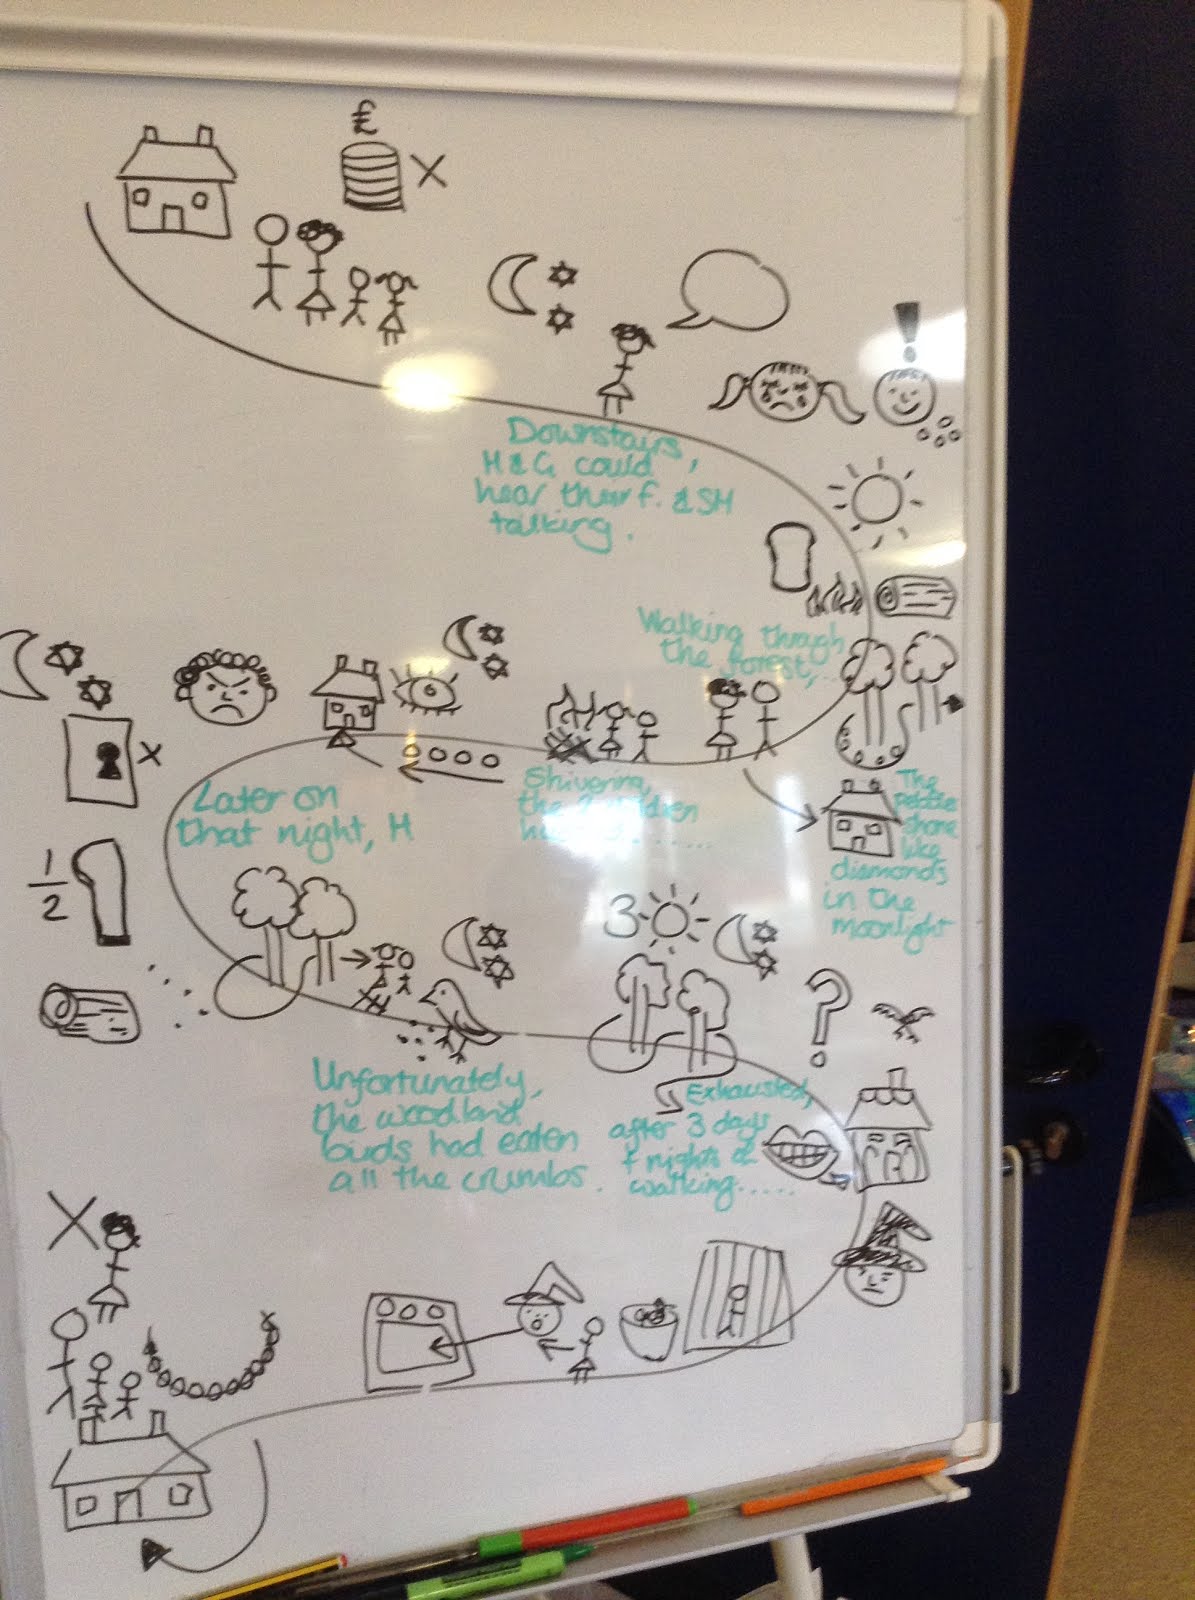 £
Downstairs,
H & G could
hear their f. & SH
talking.
Walking through
the forest, ...
The
pebbles
shone
like
diamonds
in the
moonlight
Shivering,
the
Later on
that night, H
1/2
3
Unfortunately,
the woodland
birds had eaten
all the crumbs.
?
Exhausted,
after 3 days
+ nights of
walking.....